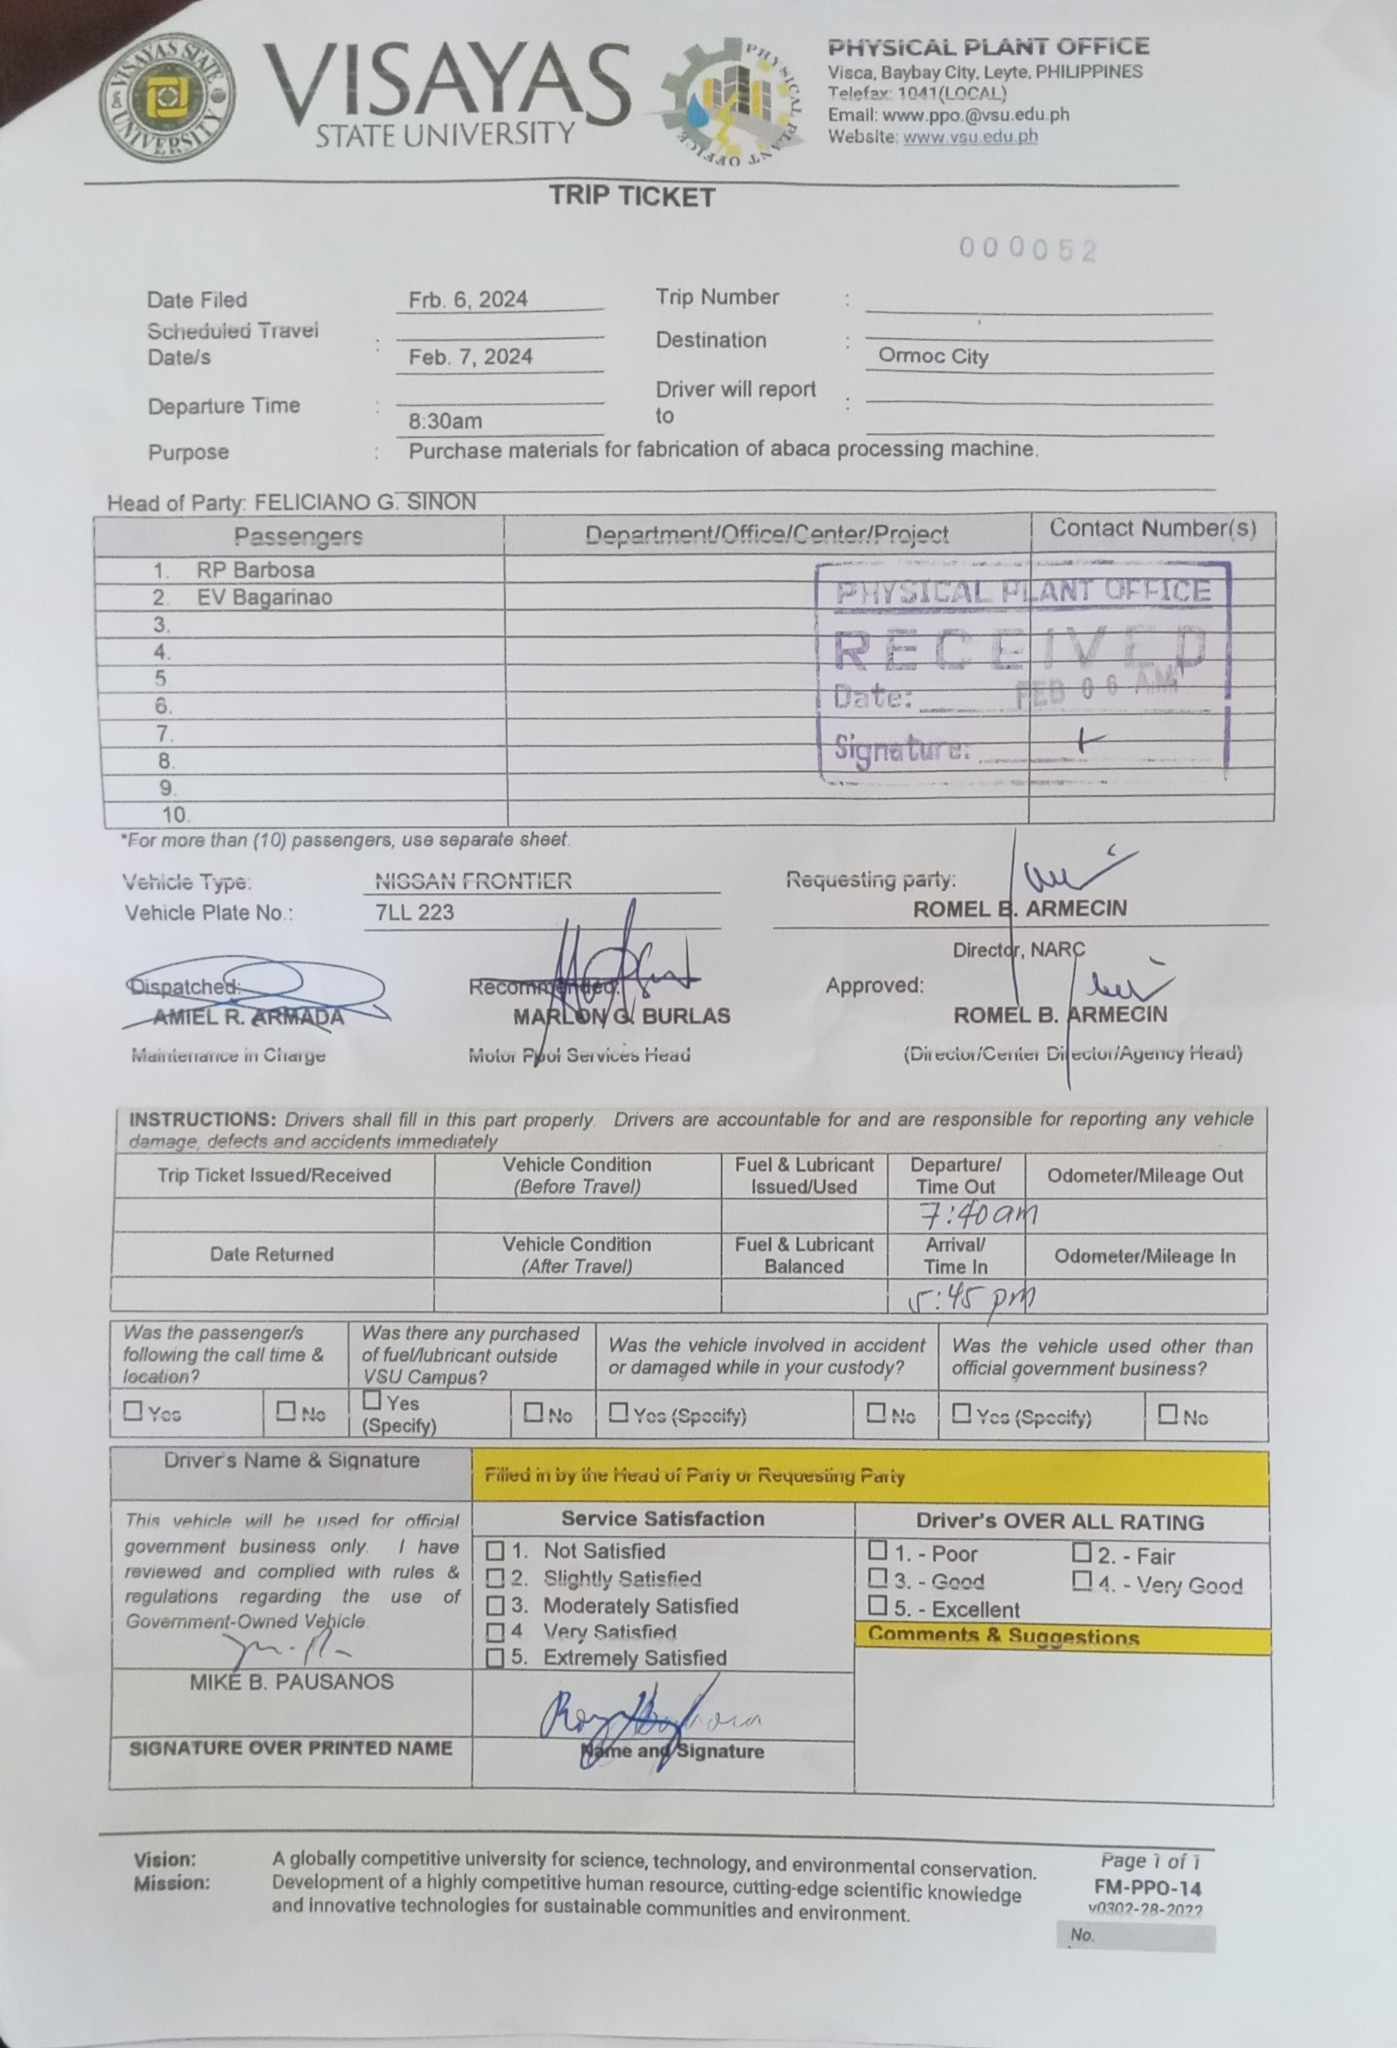 VISAYAS STATE UNIVERSITY
VISAYAS
STATE UNIVERSITY
PHYSICAL PLANT OFFICE
PHYSICAL PLANT OFFICE
Visca, Baybay City, Leyte, PHILIPPINES
Telefax: 1041(LOCAL)
Email: www.ppo.@vsu.edu.ph
Website: www.vsu.edu.ph
TRIP TICKET
000052
Date Filed Frb. 6, 2024 Trip Number :
Scheduled Travel Date/s : Feb. 7, 2024 Destination : Ormoc City
Departure Time : 8:30am Driver will report to :
Purpose : Purchase materials for fabrication of abaca processing machine.
Head of Party: FELICIANO G. SINON
Passengers Department/Office/Center/Project Contact Number(s)
1. RP Barbosa
2. EV Bagarinao
3.
4.
5
6.
7.
8.
9.
10.
PHYSICAL PLANT OFFICE
RECEIVED
Date: FEB 06 AM
Signature:
*For more than (10) passengers, use separate sheet.
Vehicle Type: NISSAN FRONTIER Requesting party:
Vehicle Plate No.: 7LL 223 ROMEL B. ARMECIN
Director, NARC
Dispatched: Recommended: Approved:
AMIEL R. ARMADA MARLON G. BURLAS ROMEL B. ARMECIN
Maintenance in Charge Motor Pool Services Head (Director/Center Director/Agency Head)
INSTRUCTIONS: Drivers shall fill in this part properly. Drivers are accountable for and are responsible for reporting any vehicle
damage, defects and accidents immediately
Trip Ticket Issued/Received Vehicle Condition (Before Travel) Fuel & Lubricant Issued/Used Departure/ Time Out Odometer/Mileage Out
7:40am
Date Returned Vehicle Condition (After Travel) Fuel & Lubricant Balanced Arrival/ Time In Odometer/Mileage In
5:45 pm
Was the passenger/s following the call time & location? Was there any purchased of fuel/lubricant outside VSU Campus? Was the vehicle involved in accident or damaged while in your custody? Was the vehicle used other than official government business?
Yes No Yes (Specify) No Yes (Specify) No Yes (Specify) No
Driver's Name & Signature Filled in by the Head of Party or Requesting Party
This vehicle will be used for official
government business only. I have
reviewed and complied with rules &
regulations regarding the use of
Government-Owned Vehicle.
MIKE B. PAUSANOS
SIGNATURE OVER PRINTED NAME
Service Satisfaction
1. Not Satisfied
2. Slightly Satisfied
3. Moderately Satisfied
4 Very Satisfied
5. Extremely Satisfied
Name and Signature
Driver's OVER ALL RATING
1. - Poor 2. - Fair
3. - Good 4. - Very Good
5. - Excellent
Comments & Suggestions
Vision: A globally competitive university for science, technology, and environmental conservation.
Mission: Development of a highly competitive human resource, cutting-edge scientific knowledge
and innovative technologies for sustainable communities and environment.
Page 1 of 1
FM-PPO-14
v0302-28-2022
No.